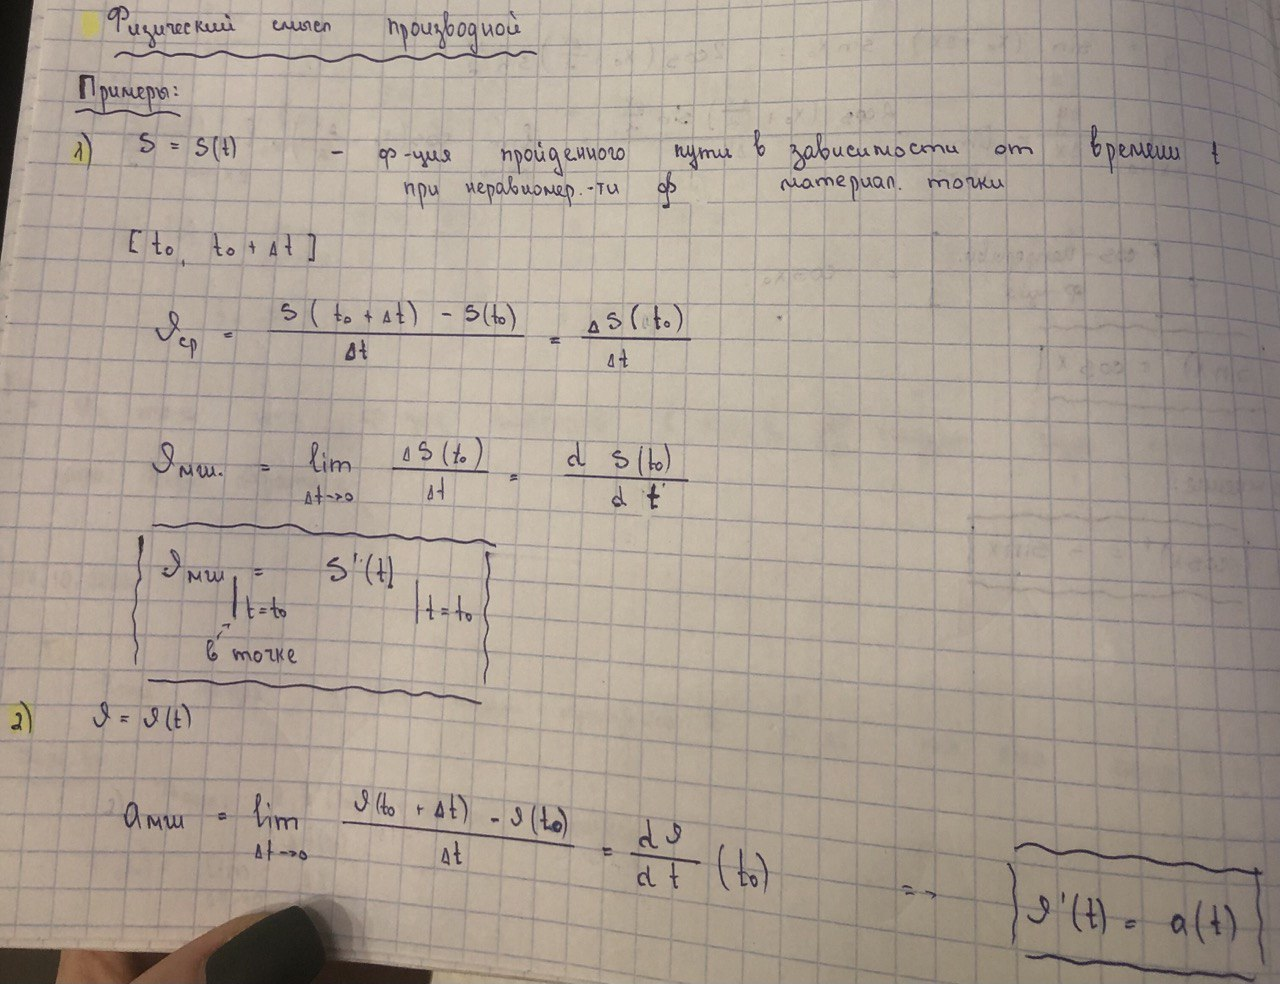 Физический смысл производной
Примеры:
1) S = S(t) - ф-ция пройденного пути в зависимости от времени t
при неравномер.-ти ф материал. точки
[t₀, t₀ + Δt]
𝜗ср = (S(t₀ + Δt) - S(t₀)) / Δt = ΔS(t₀) / Δt
𝜗мш. = lim Δt→0 ΔS(t₀) / Δt = d S(t₀) / d t
𝜗мш |t=t₀ = S'(t) |t=t₀
в точке
2) 𝜗 = 𝜗(t)
aмш = lim Δt→0 (𝜗(t₀ + Δt) - 𝜗(t₀)) / Δt = d𝜗 / dt (t₀) => 𝜗'(t) = a(t)